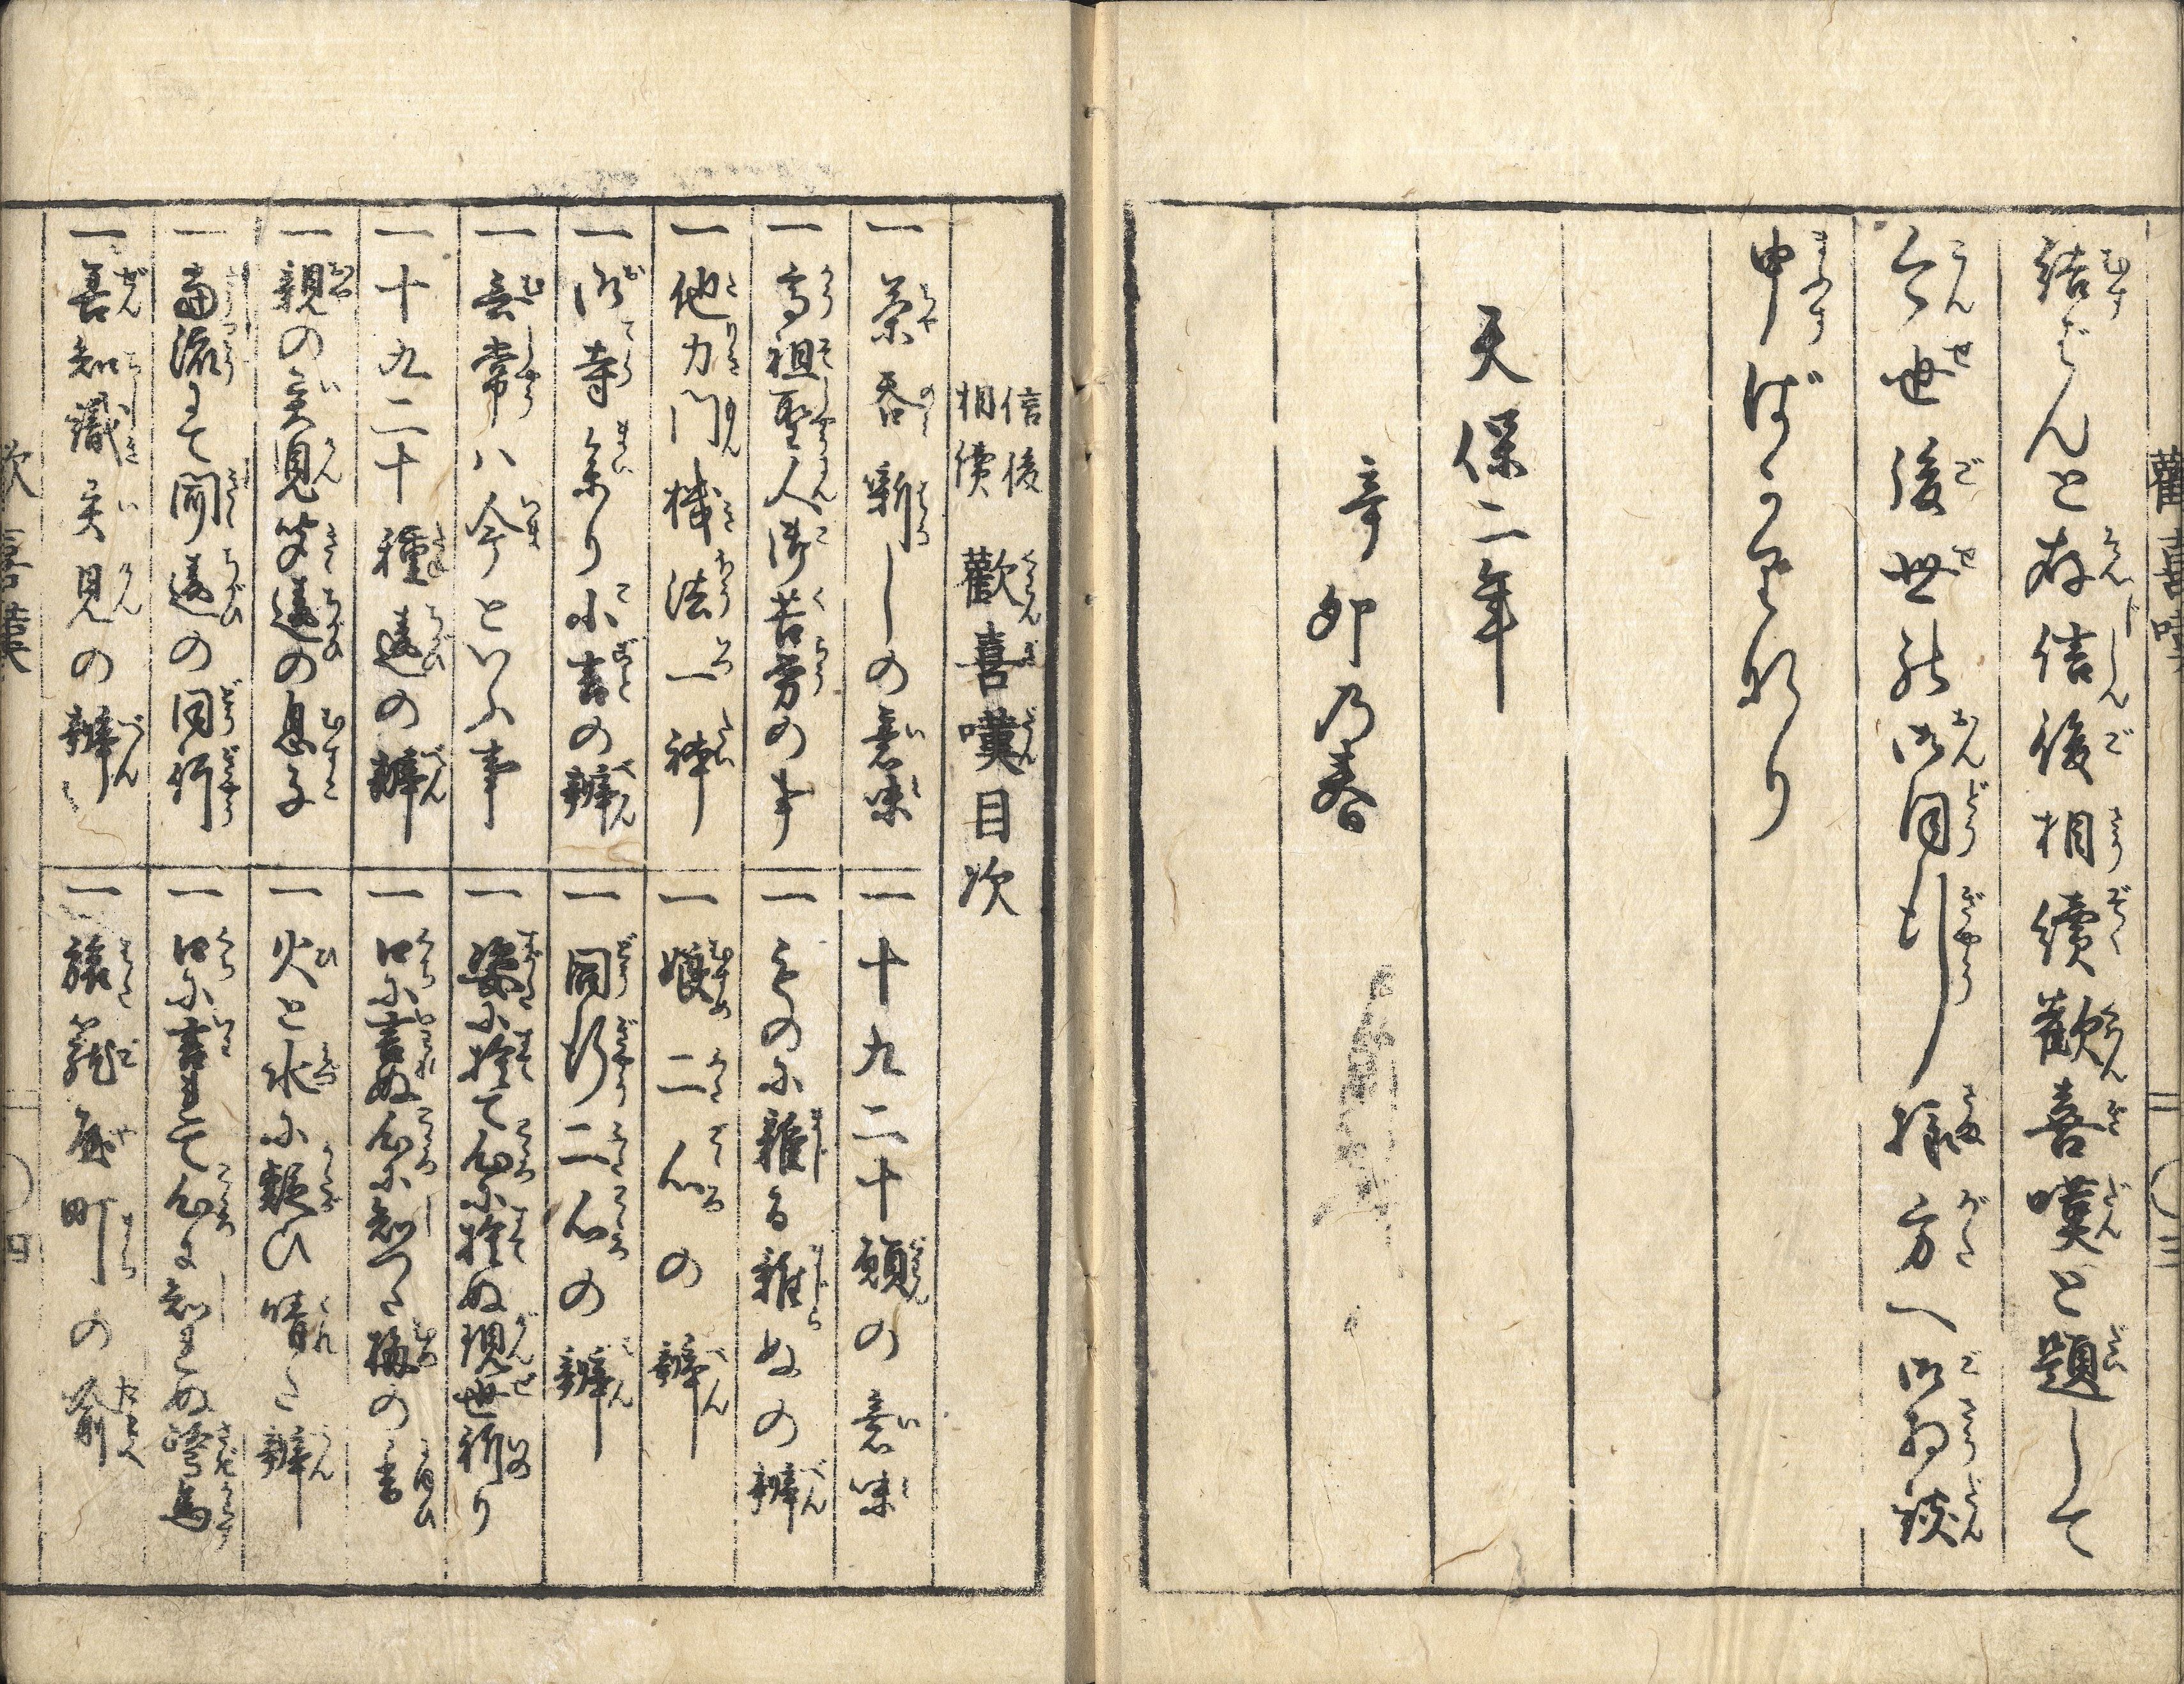 歡喜嘆
二〇三
結ばんと存信後相續歡喜嘆と題して
今世後世の御同行様方へ御相談
申ばかりなり
天保二年
辛卯乃春
信後
相續
歡喜嘆目次
一茶呑斬しの意味
一高祖聖人御苦労の事
一他力門機法一体
一御寺参り小言の辨
一無常ハ今といふ事
一十九二十種違の辨
一親の意見聞違の息子
一當流にて聞違の同行
一善知識意見の辨
一十九二十願の意味
一ものに雜る雜らぬの辨
一娘二心の辨
一同行二心の辨
一姿に捨て心に捨ぬ現世祈り
一口に言ぬ心に知つた梅の香
一火と水に疑ひ晴た辨
一口に言はて心に知らぬ鸎烏
一旅籠屋町の喩
歡喜嘆
二〇四